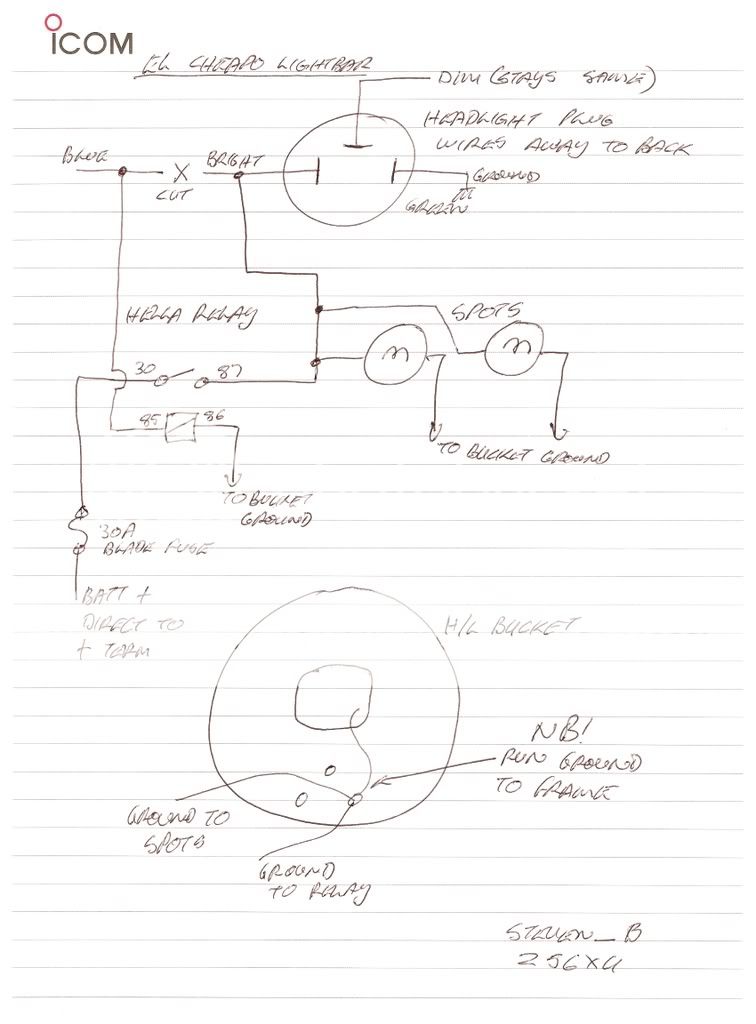 ICOM
EL CHEAPO LIGHTBAR
DIM (STAYS SAME)
HEADLIGHT PLUG
WIRES AWAY TO BACK
BLUE
X
CUT
BRIGHT
GROUND
GREEN
HELLA RELAY
SPOTS
30
87
85
86
TO BUCKET GROUND
TO BUCKET
GROUND
30A
BLADE FUSE
BATT +
DIRECT TO
+ TERM
H/L BUCKET
NB!
RUN GROUND
TO FRAME
GROUND TO
SPOTS
GROUND
TO RELAY